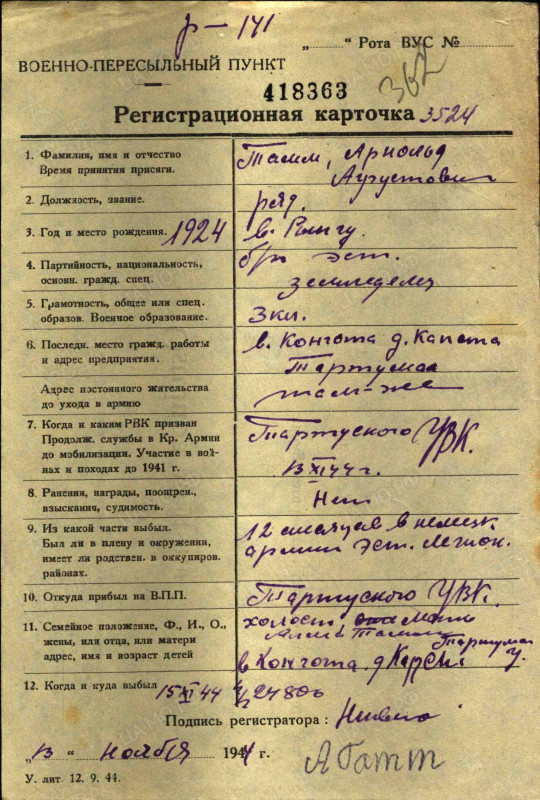 р-141
„ “ Рота ВУС №
ВОЕННО-ПЕРЕСЫЛЬНЫЙ ПУНКТ
362
418363
Регистрационная карточка 3524
1. Фамилия, имя и отчество
Время принятия присяги.
Тамм, Арнольд
Аугустович
2. Должность, звание.
ряд.
3. Год и место рождения. 1924
в. Рынгу.
4. Партийность, национальность,
основн. гражд. спец.
б/п эст.
земледелец
5. Грамотность, общее или спец.
образов. Военное образование.
3кл.
6. Последн. место гражд. работы
и адрес предприятия.
в. Конгота д.
Тартумаа
Адрес постоянного жительства
до ухода в армию
там-же
7. Когда и каким РВК призван
Продолж. службы в Кр. Армии
до мобилизации. Участие в вой-
нах и походах до 1941 г.
Тартуского УВК.
13 XI 44 г.
8. Ранения, награды, поощрен.,
взыскания, судимость.
Нет
9. Из какой части выбыл.
Был ли в плену и окружении,
имеет ли родствен. в оккупиров.
районах.
12 месяцев в немецк.
армии Эст. легион.
10. Откуда прибыл на В.П.П.
Тартуского УВК.
11. Семейное положение, Ф., И., О.,
жены, или отца, или матери
адрес, имя и возраст детей
холост, мать
Тамм
Тартумаа
в Конгота д.
12. Когда и куда выбыл 15 XI 44
24806
Подпись регистратора:
„13“ ноября 1944 г.
У. лит. 12. 9. 44.